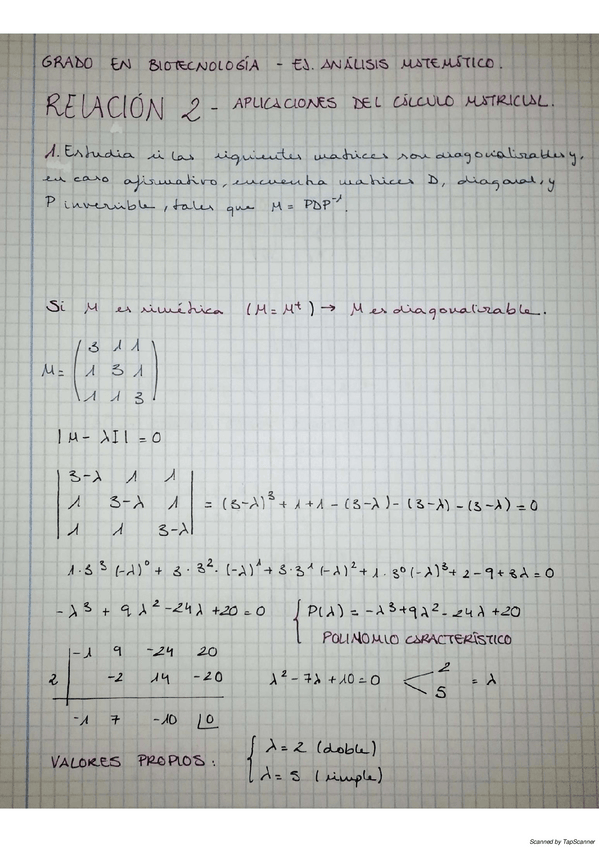 GRADO EN BIOTECNOLOGÍA - EJ. ANÁLISIS MATEMÁTICO.
RELACIÓN 2 - APLICACIONES DEL CÁLCULO MATRICIAL.
1. Estudia si las siguientes matrices son diagonalizables y,
en caso afirmativo, encuentra matrices D, diagonal, y
P invertible, tales que M = PDP⁻¹.
Si M es simétrica (M = Mᵗ) → M es diagonalizable.
M = ( 3 1 1
1 3 1
1 1 3 )
|M - λI| = 0
| 3-λ 1 1 |
| 1 3-λ 1 | = (3-λ)³ + 1 + 1 - (3-λ) - (3-λ) - (3-λ) = 0
| 1 1 3-λ |
1·3³(-λ)⁰ + 3·3²·(-λ)¹ + 3·3¹(-λ)² + 1·3⁰(-λ)³ + 2 - 9 + 3λ = 0
-λ³ + 9λ² - 24λ + 20 = 0 { P(λ) = -λ³ + 9λ² - 24λ + 20
POLINOMIO CARACTERÍSTICO
-1 9 -24 20
2 | -2 14 -20 λ² - 7λ + 10 = 0 < 2 5 = λ
-1 7 -10 |0
VALORES PROPIOS: { λ = 2 (doble)
λ = 5 (simple)
Scanned by TapScanner